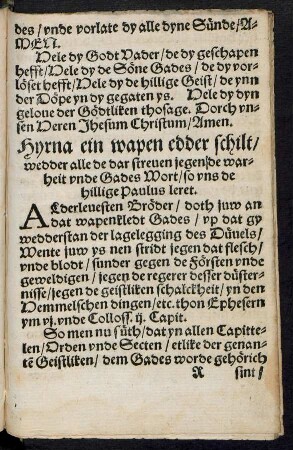 des / vnde vorlate dy alle dyne Sünde / A-
MEN.
Hele dy Godt Vader / de dy geschapen
hefft / Hele dy de Söne Gades / de dy vor-
löset hefft / Hele dy de hillige Geist / de ynn
der Döpe yn dy gegaten ys. Hele dy dyn
geloue der Gödtliken thosage. Dorch vn-
sen Heren Jhesum Christum / Amen.
Hyrna ein wapen edder schilt /
wedder alle de dar streuen jegen de war-
heit vnde Gades Wort / so vns de
hillige Paulus leret.
ALderleuesten Bröder / doth juw an
dat wapenkledt Gades / vp dat gy
wedderstan der lagelegging des Düuels /
Wente juw ys nen stridt jegen dat flesch /
vnde blodt / sünder gegen de Försten vnde
geweldigen / jegen de regerer desser düster-
nisse / jegen de geistliken schalckheit / yn den
Hemmelschen dingen / etc. thon Ephesern
ym vj. vnde Colloss. ij. Capit.
So men nu süth / dat yn allen Capitte-
len / Orden vnde Secten / etlike der genan-
tē Geistliken / dem Gades worde gehörich
A sint /